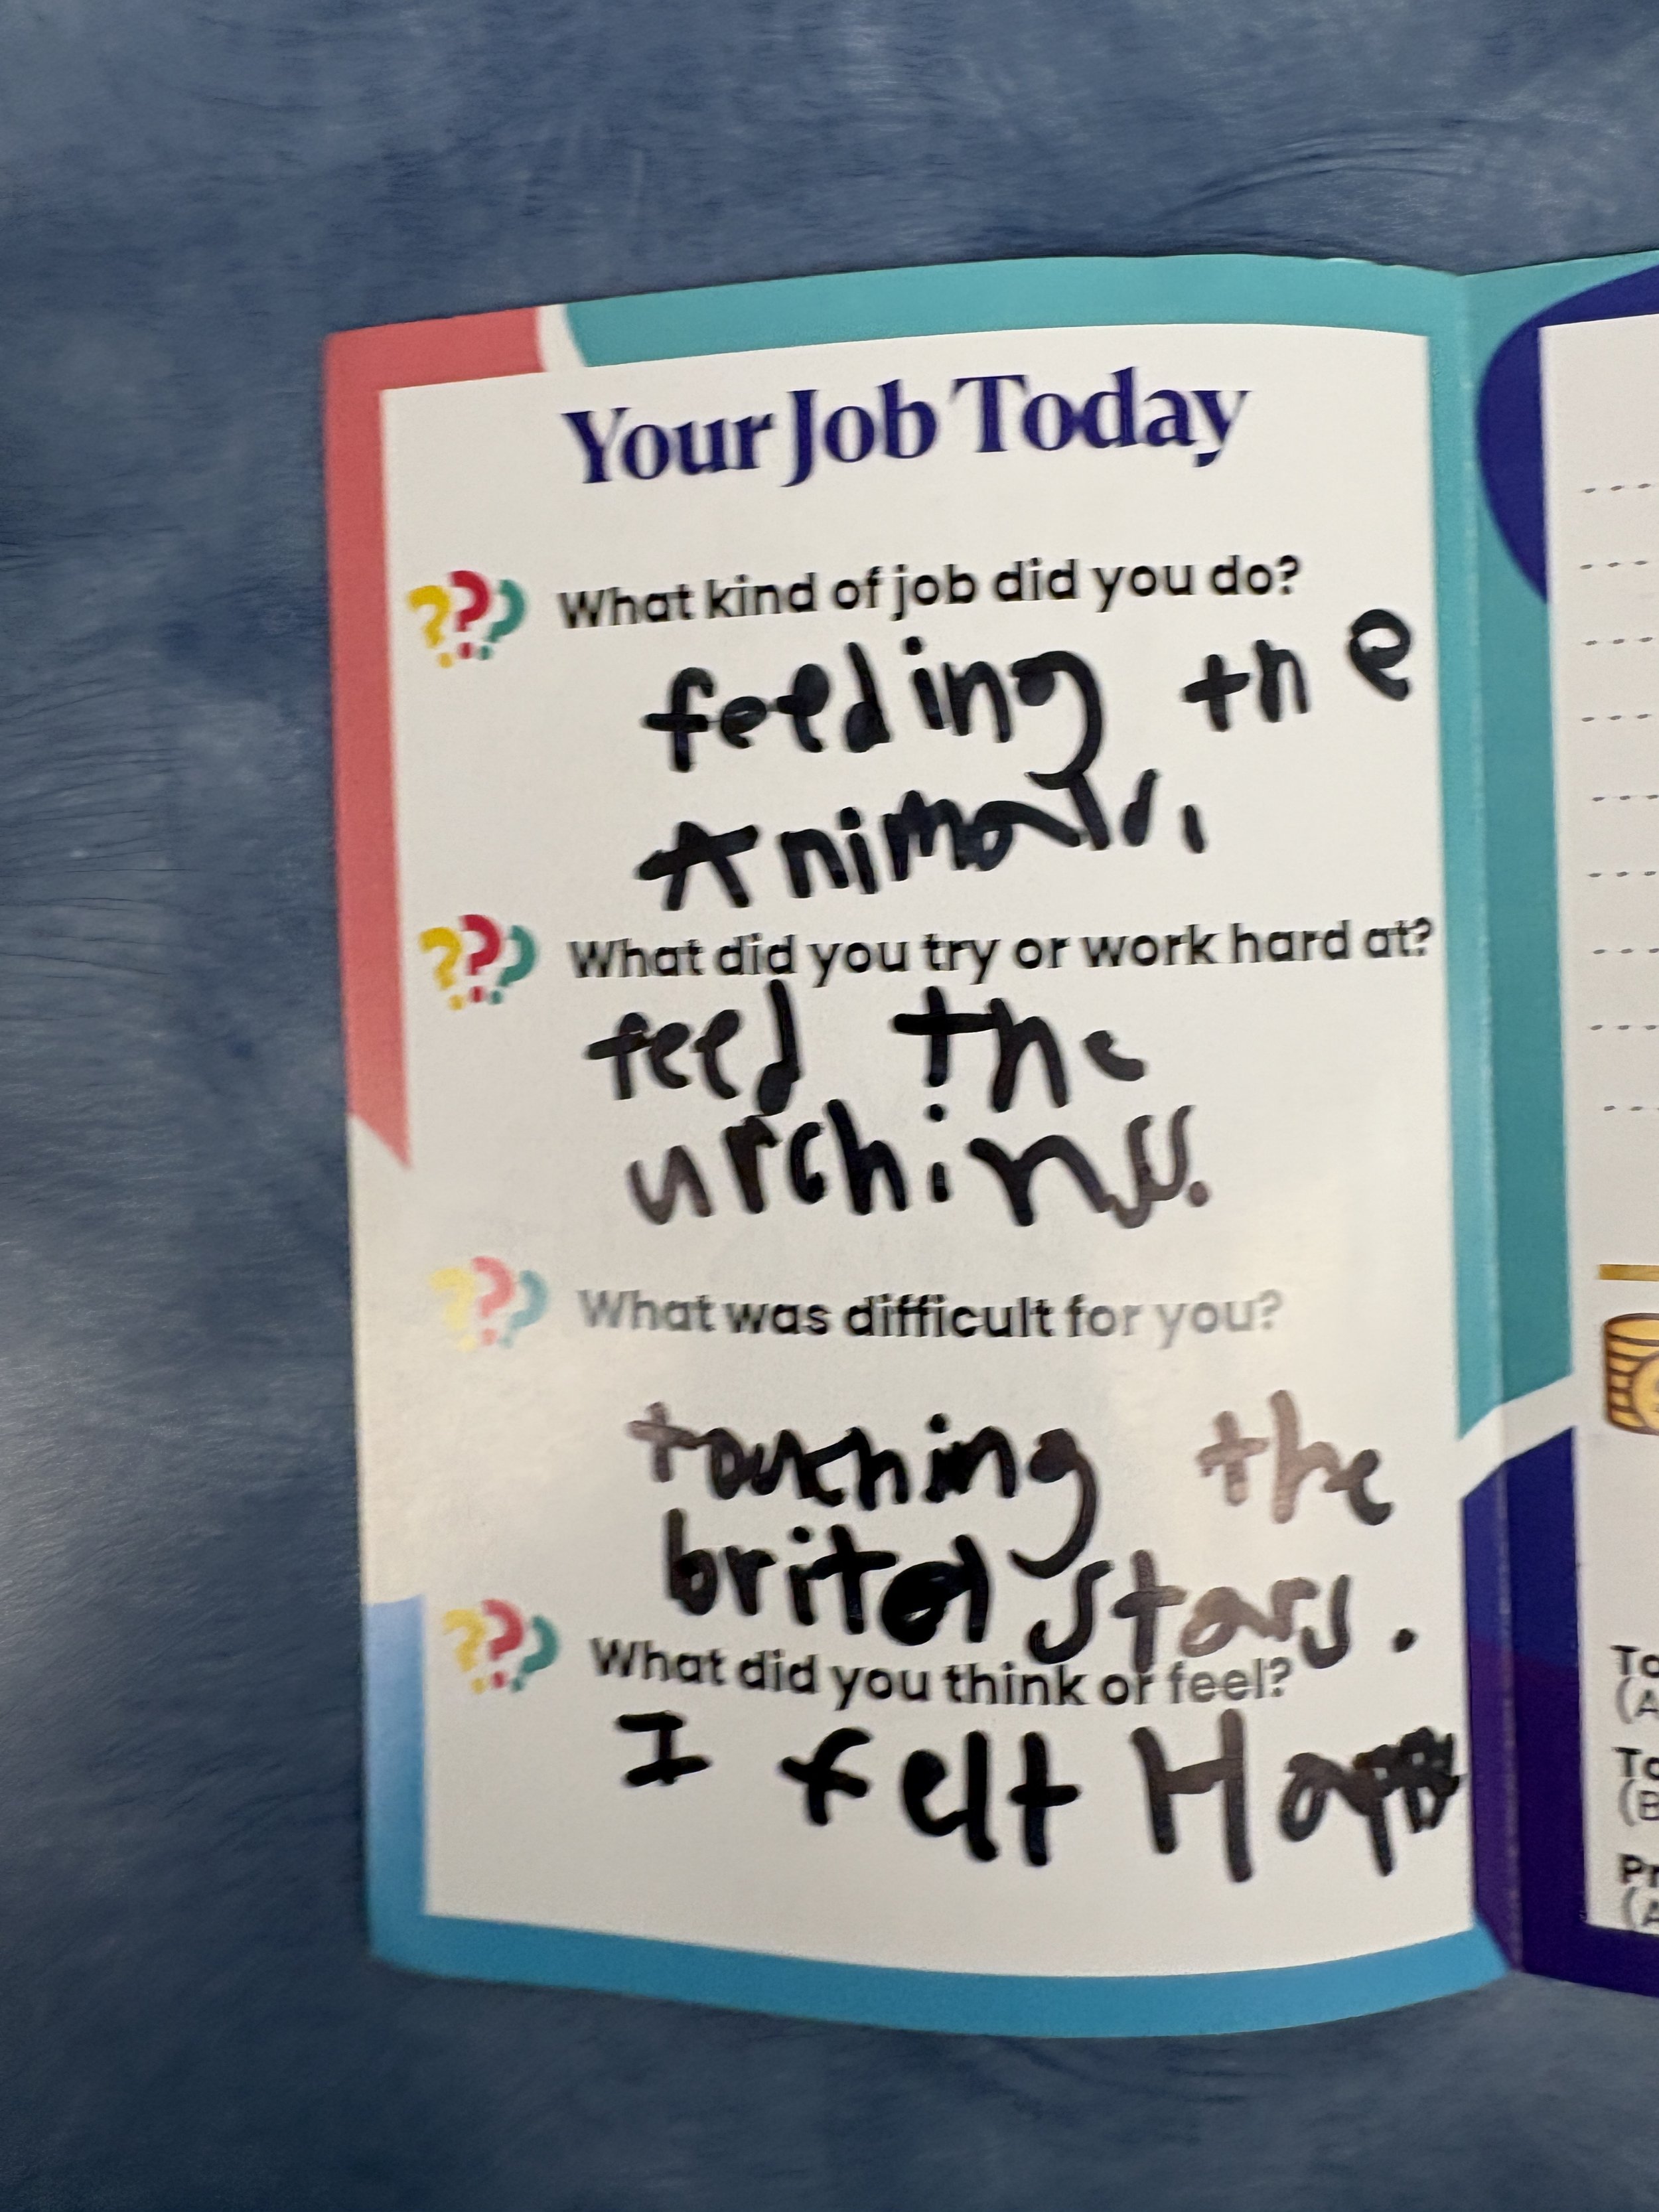 Your Job Today
??? What kind of job did you do?
feeding the
Animals.
??? What did you try or work hard at?
feed the
urchins.
??? What was difficult for you?
touching the
britel stars.
??? What did you think or feel?
I felt Happy
To
(A
To
(B
Pr
(A